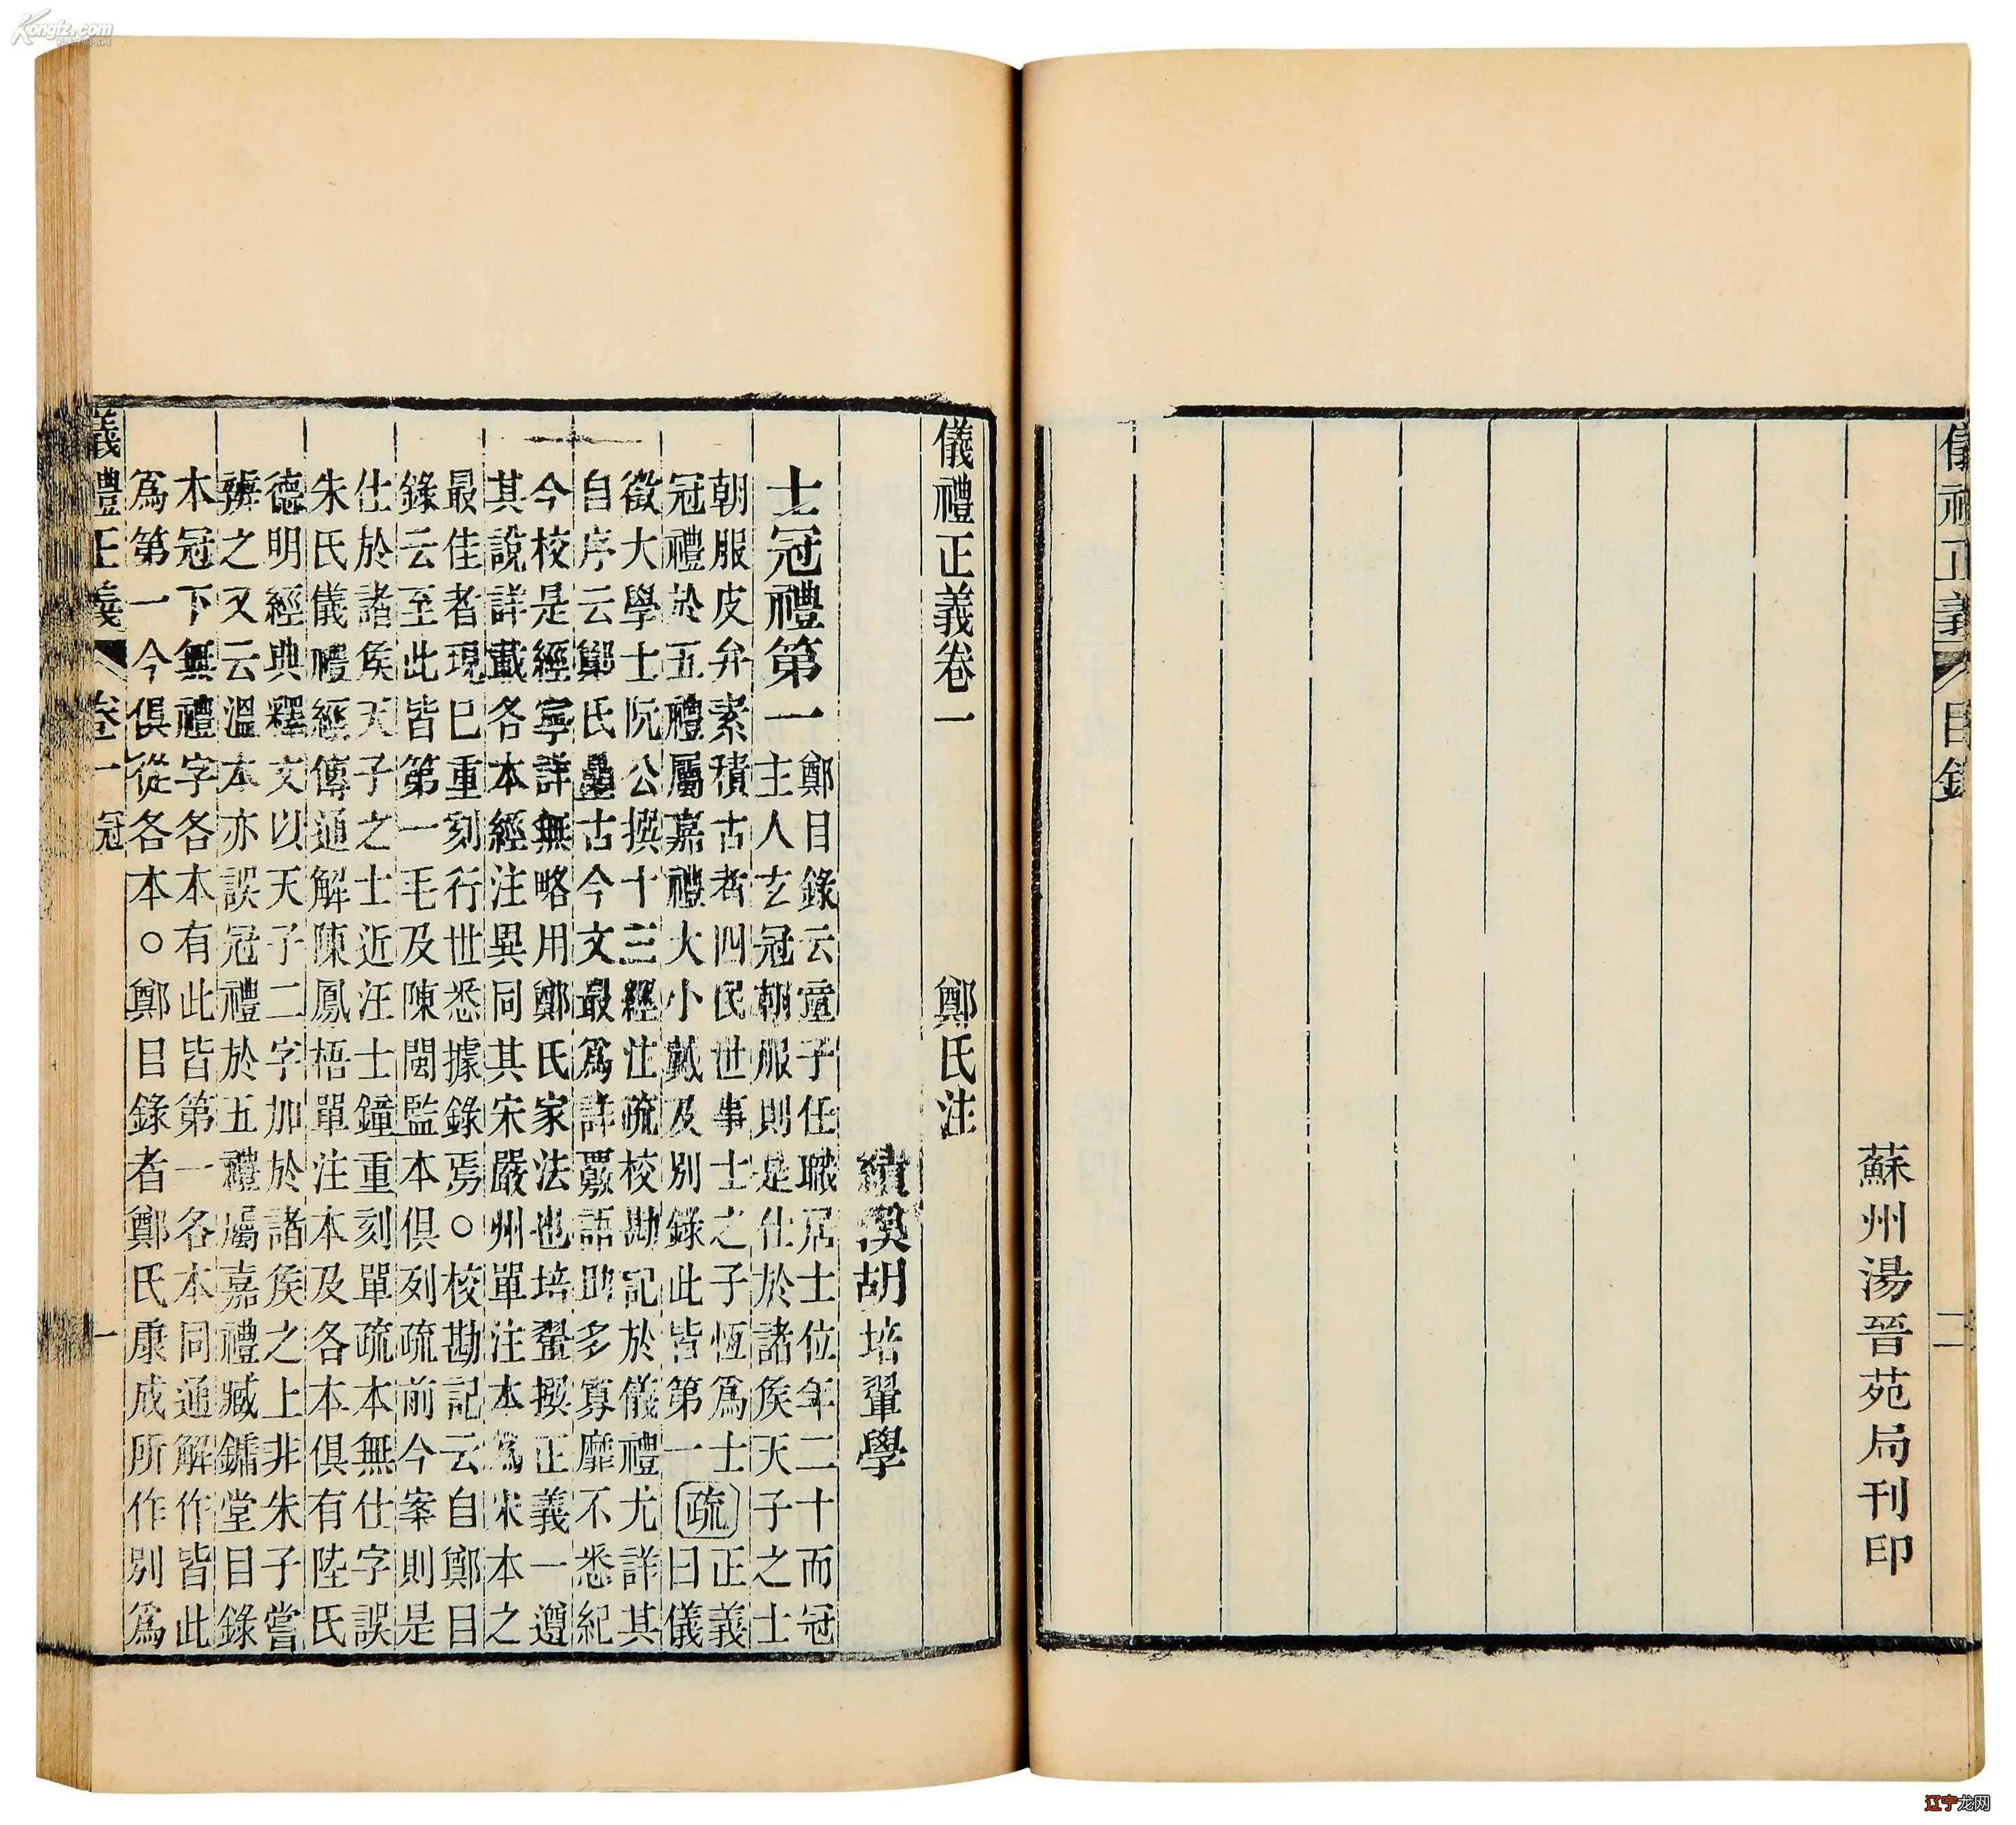 Kongfz.com
儀禮正義 目錄 二
蘇州湯晉苑局刊印
儀禮正義卷一 鄭氏注
績溪胡培翬學
士冠禮第一
鄭目錄云童子任職居士位年二十而冠
主人玄冠朝服則是仕於諸侯天子之士
朝服皮弁素積古者四民世事士之子恆爲士
冠禮於五禮屬嘉禮大小戴及別錄此皆第一
疏
正義
曰儀
徵大學士阮公撰十三經注疏校勘記於儀禮尤詳其
自序云鄭氏疊古今文最爲詳覈語助多寡靡不悉紀
今校是經寧詳無略用鄭氏家法也培翬撰正義一遵
其說詳載各本經注異同其宋嚴州單注本爲宋本之
最佳者現已重刻行世悉據錄焉○校勘記云自鄭目
錄云至此皆第一毛及陳閩監本俱列疏前今案則是
仕於諸侯天子之士近汪士鐘重刻單疏本無仕字誤
朱氏儀禮經傳通解陳鳳梧單注本及各本俱有陸氏
德明經典釋文以天子二字加於諸侯之上非朱子嘗
辨之又云溫本亦誤冠禮於五禮屬嘉禮臧鏞堂目錄
本冠下無禮字各本有此皆第一各本同通解作皆此
爲第一今俱從各本○鄭目錄者鄭氏康成所作別爲
儀禮正義 卷一 冠 一
辽宁龙网